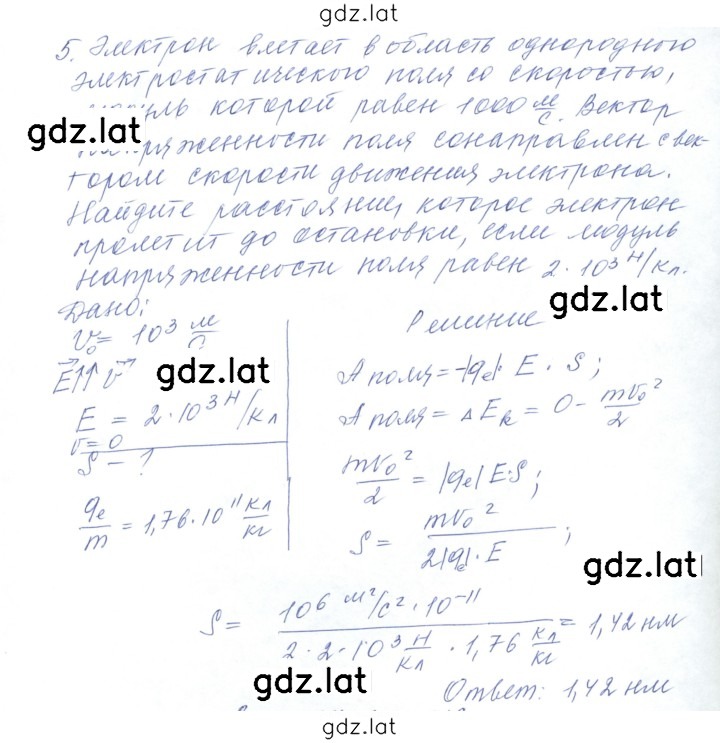 gdz.lat
5. Электрон влетает в область однородного
электростатического поля со скоростью,
которой равен 1000 м/с. Вектор
gdz.lat
поля сонаправлен с век-
тором скорости движения электрона.
Найдите расстояние, которое электрон
пролетит до остановки, если модуль
напряженности поля равен 2·10³ Н/кл.
gdz.lat
Дано:
Решение
V₀ = 10³ м/с
E⃗↑↑v⃗
gdz.lat
A поля = -|qe| E · S;
E = 2·10³ Н/кл
A поля = ΔEк = 0 - mv₀²/2
v = 0
S - ?
mv₀²/2 = |qe| E·S;
qe/m = 1,76·10¹¹ кл/кг
S = mv₀²/2|qe|·E;
gdz.lat
S = 10⁶ м²/с²·10⁻¹¹/2·2·10³ Н/кл · 1,76 кл/кг = 1,42 нм
gdz.lat
Ответ: 1,42 нм
gdz.lat